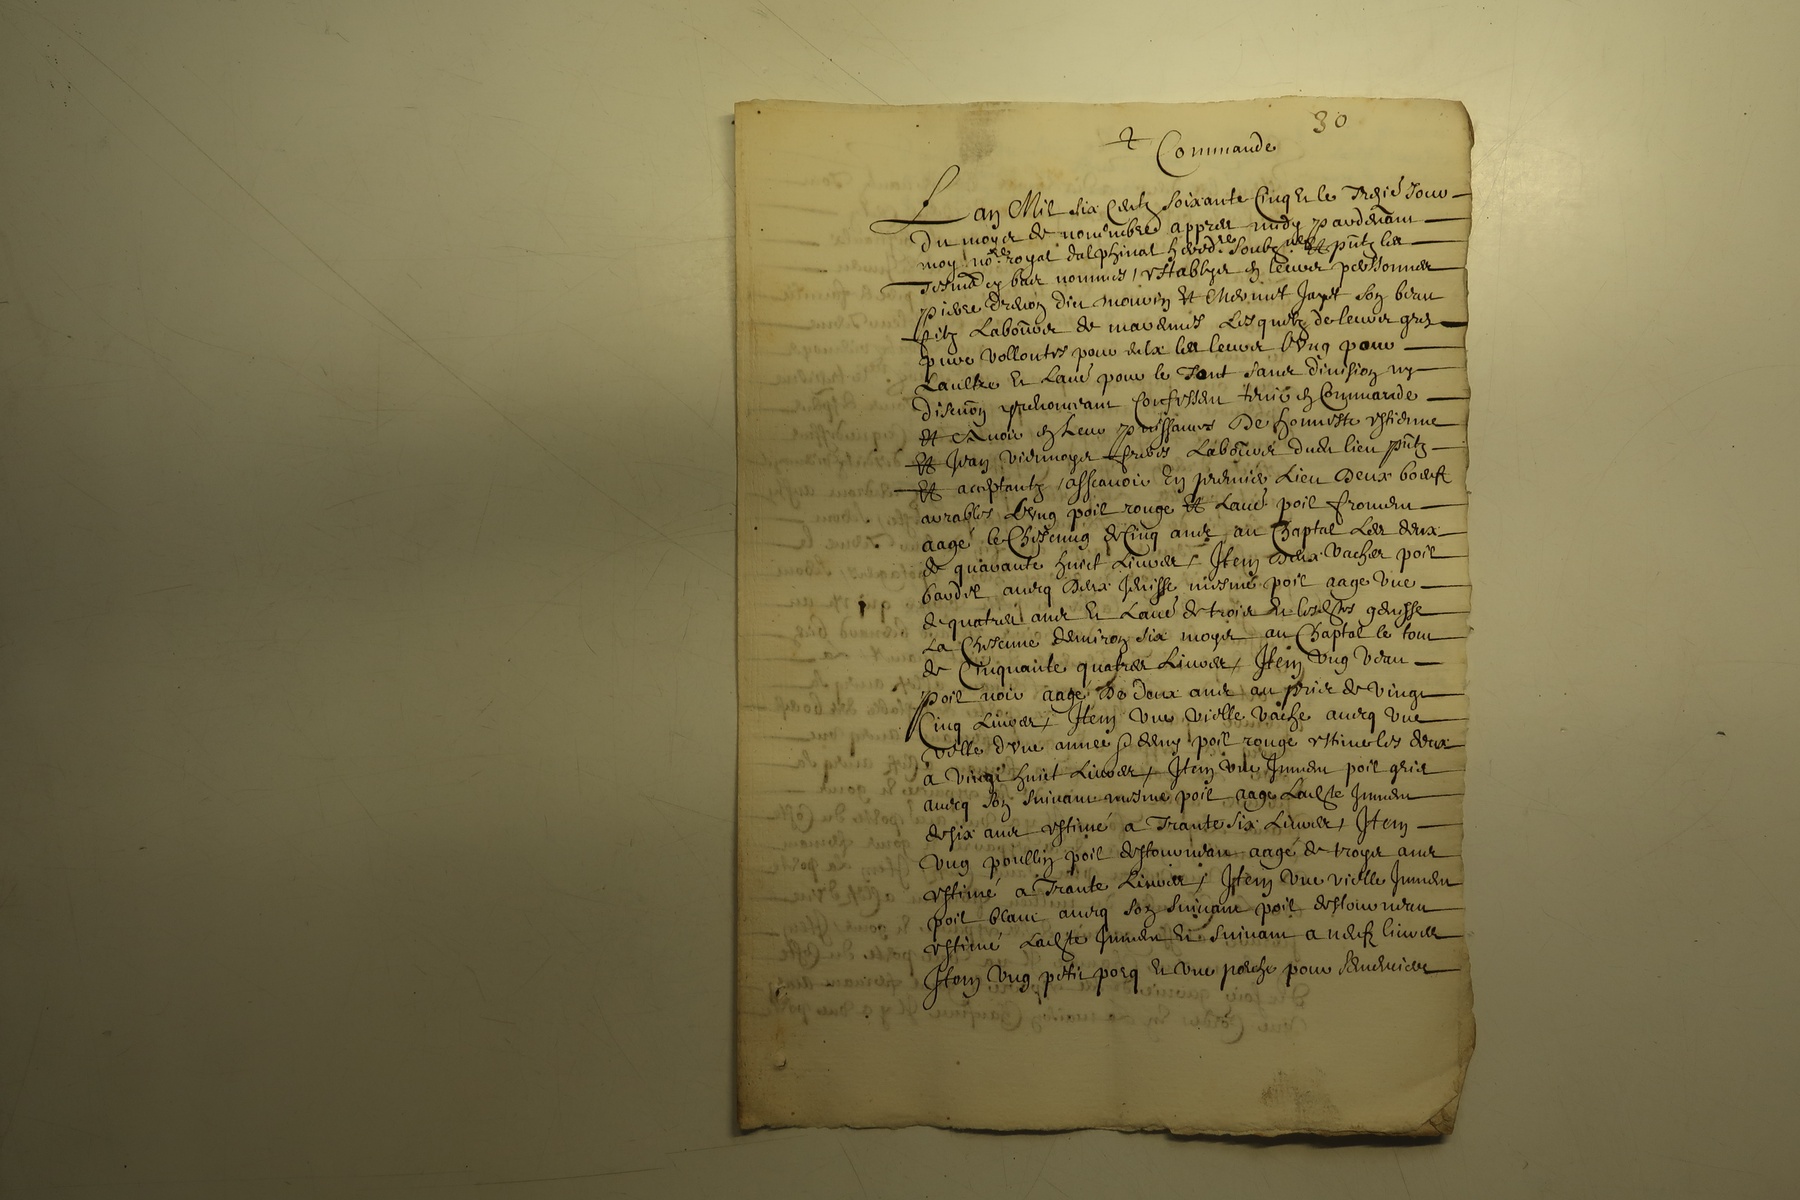 30
Commande
Lan Mil six centz soixante cinq et le treizie Jour
du moys de novembre appres midy pardevant
moy nore royal dalphinal heredre soubzne et pntz les
tesmoingz bas nommes / establys en leurs personnes
pierre et Mermet Jayet son beau
filz Laboureur de Lesquelz de leurs grez
pure vollontes pour eulx les leurs lung pour
Laultre et Laue pour le tout sans division ny
discution renonceant confessent tenir en Commande
et avoir en leur puissance De honneste estienne
et Jean freres Laboureur dudt lieu pntz
et acceptantz / asscavoir En premier Lieu Deux boeufz
arables Lung poil rouge et Laue poil froment
aagé le Chescung de Cinq ans au Chaptal Les deux
de quarante huict Livres / Item Deux Vaches poil
bardel avecq Deux Jenisse mesme poil aage Une
de quatres ans et Laue de trois et lesdtes genisse
La Chescune denviron six moys au Chaptal le tout
de Cinquante quatres Livres / Item Ung Veau
poil noir aagé De Deux ans au pris de Vingt
Cinq Livres / Item Une vielle Vache avecq Une
velle d'Une année & demy poil rouge estime les deux
a Vingt huict Livres / Item Une Jument poil gris
avecq son suivant mesme poil aage Ladte Jument
de six ans estimé a Trante six Livres / Item
Ung poullin poil destourneau aagé de troys ans
estimé a Trante Livres / Item Une vielle Jument
poil blanc avecq son suivant poil destourneau
estimé Ladte Jument et suivant a neufz livres
Item Ung petit porq et Une pour